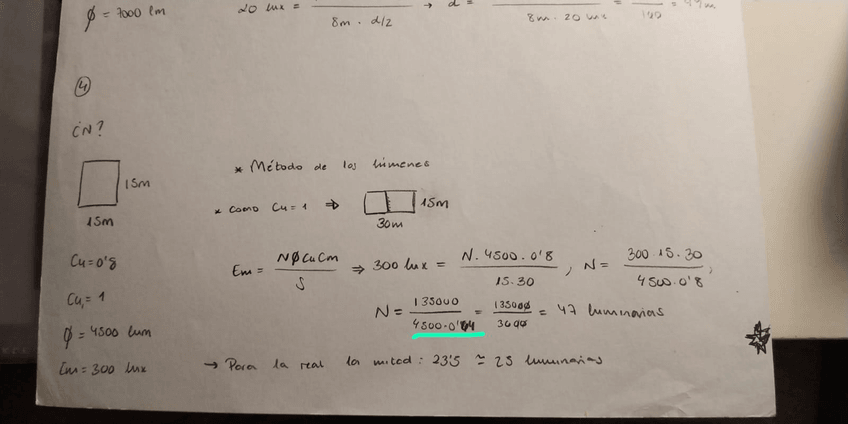 ϕ = 7000 lm
20 lux = / 8m · d/2 → d = / 8m · 20 lux = / 100 = 44m
④
¿N?
15m
15m
* Método de los lúmenes
* como Cu = 1 ⇒ 15m
30m
Cu = 0'8
Cu, = 1
ϕ = 4500 lum
Em = 300 lux
Em = NϕCuCm / S ⇒ 300 lux = N. 4500. 0'8 / 15.30 , N = 300.15.30 / 4500.0'8 ,
N = 135000 / 4500.0'64 = 135000 / 3600 = 47 luminarias
→ Para la real la mitad: 23'5 ≃ 23 luminarias